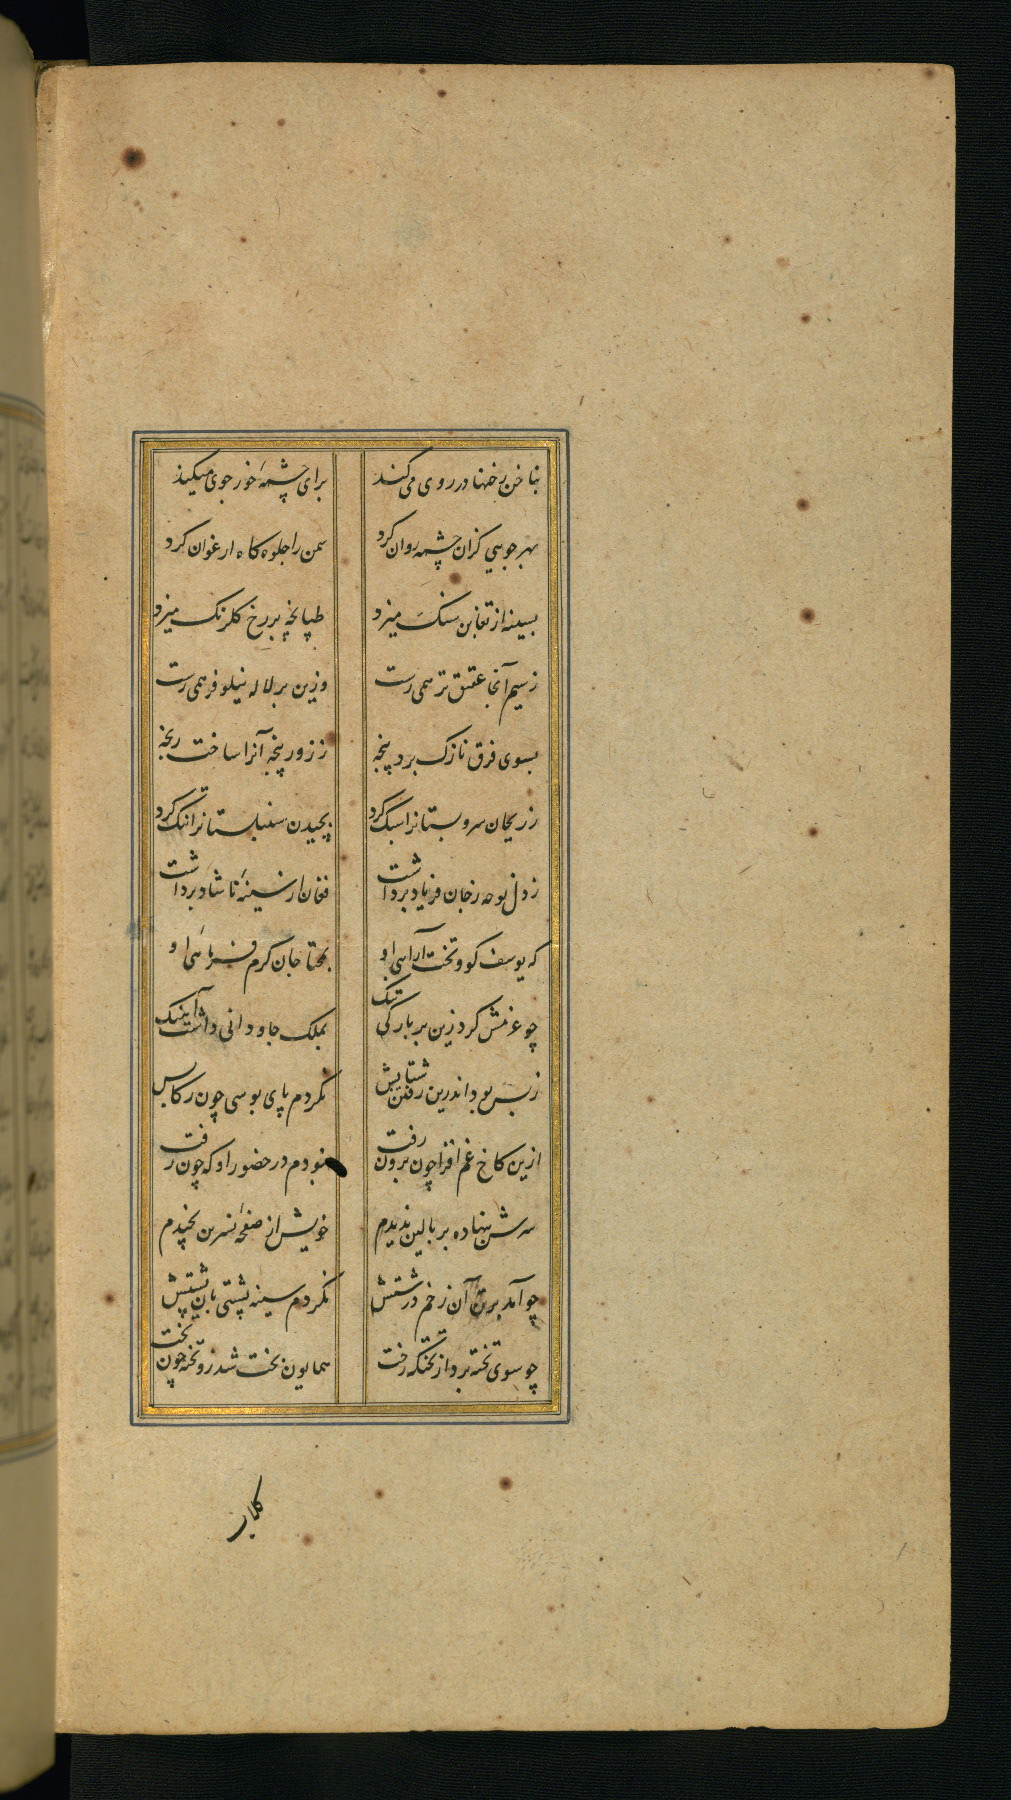 بناخن رخنها در روی می کند برای چشمهٔ خور جوی میکند
بهر جویی کزان چشمه روان کرد سمن را جلوه کاه ارغوان کرد
بسینه از تغابن سنک میزد طپانچه بر رخ کلرنک میزد
ز سیم آنجا عقیق تر همی رست وزین بر لاله نیلوفر همی رست
بسوی فرق نازک برد پنجه ز زور پنجه آنرا ساخت رنجه
ز ریحان سرو بستانرا سبک کرد بچیدن سنبلستانرا تنک کرد
ز دل نوحه ز جان فریاد برداشت فغان از سینهٔ ناشاد برداشت
که یوسف کو و تخت آرایی او بمحتاجان کرم فرمائی او
چو عزمش کرد زین بر بارکی تنک بملک جاودانی داشت آهنک
ز بس بود اندرین رفتن شتابش نکردم پای بوسی چون رکابش
ازین کاخ غم افزا چون برون رفت نبودم در حضور او که چون رفت
سرش بنهاده بر بالین ندیدم خویش از صفحهٔ نسرین نچیدم
چو آمد بر تن آن زخم درشتش نکردم سینه پشتی بان پشتش
چو سوی تخته برد از تختکه رخت همایون بخت شد زو تخته چون تخت
کلاب